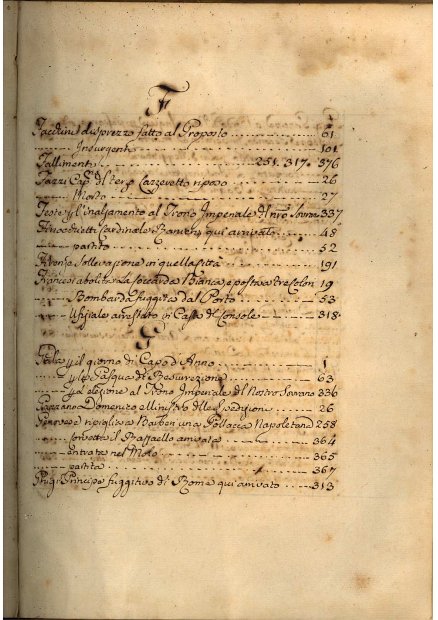 F
Facchini disprezzo fatto al Proposto 61
Insurgenti 101
Fallimenti 251. 317. 376
Fazzi Cap. del terzo Lazzeretto riposo 26
Morto 27
Feste p l'inalzamento al Trono Imperiale del nro Sovrano 337
Cardinale qui arrivato 48
partito 52
Firenze sollevazione in quella Città 191
Francesi abolita la coccarda Bianca e posta a tre colori 19
Bombarda fuggita dal Porto 53
Ufiziale arrestato in Casa del Console 318
G
Gala p il giorno di Capo d'Anno 1
p la Pasqua di Resurrezione 63
p l'elezione al Trono Imperiale del Nostro Sovrano 336
Domenico all delle Spedizioni 26
Genovese ripiglia a una Pollacca Napoletana 258
corvetta il Vassello arrivata 364
entrata nel Molo 365
partita 367
Ghigi Principe fuggitivo di Roma qui arrivato 313